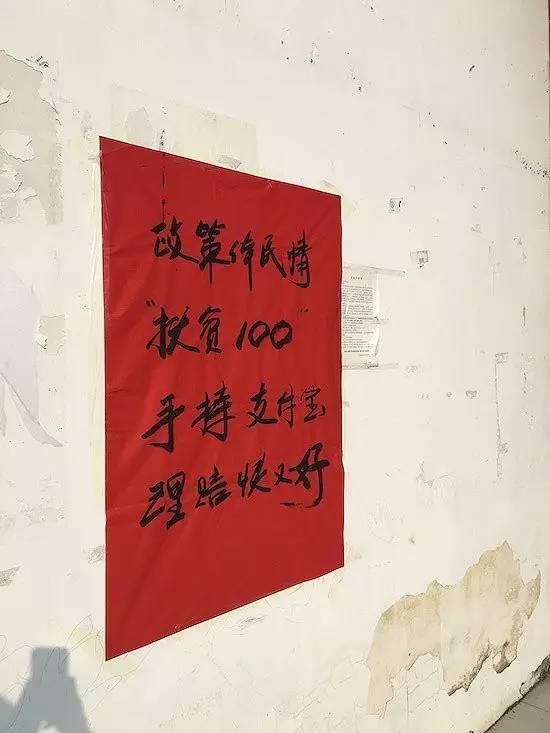 政策伴民情
"扶贫100"
手持支付宝
理赔快又好